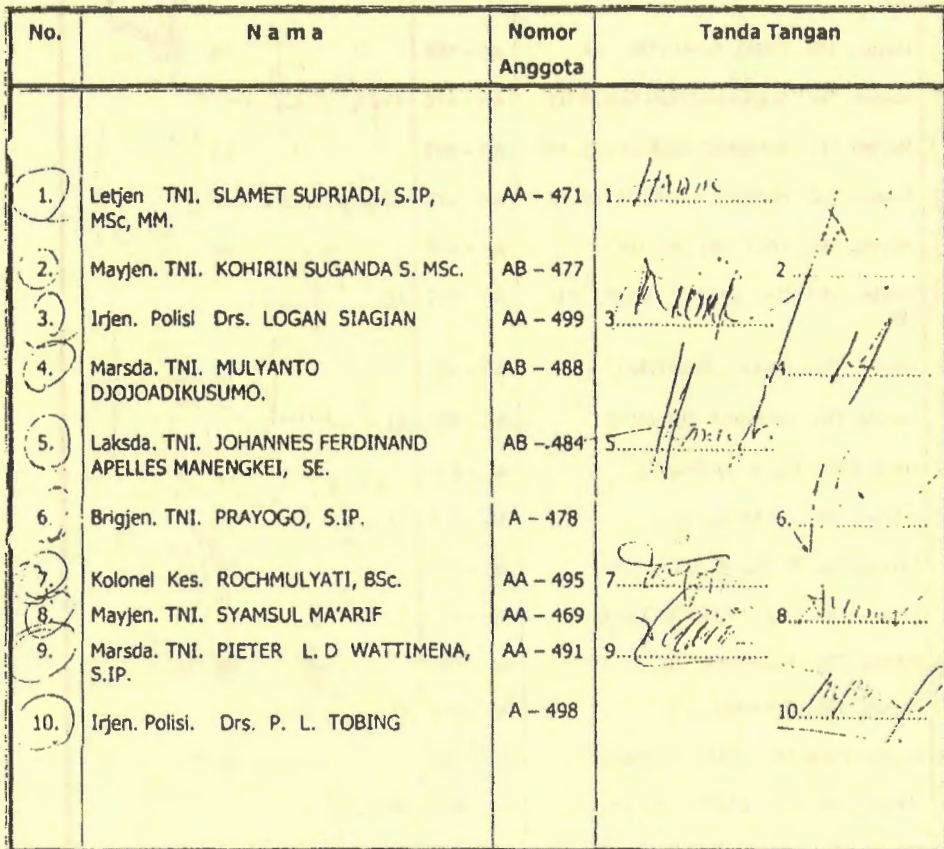 No. N a m a Nomor Anggota Tanda Tangan
1. Letjen TNI. SLAMET SUPRIADI, S.IP, AA – 471 1
MSc, MM.
2. Mayjen. TNI. KOHIRIN SUGANDA S. MSc. AB – 477 2
3. Irjen. Polisi Drs. LOGAN SIAGIAN AA – 499 3
4. Marsda. TNI. MULYANTO AB – 488 4
DJOJOADIKUSUMO.
5. Laksda. TNI. JOHANNES FERDINAND AB – 484 5
APELLES MANENGKEI, SE.
6. Brigjen. TNI. PRAYOGO, S.IP. A – 478 6.
7. Kolonel Kes. ROCHMULYATI, BSc. AA – 495 7
8. Mayjen. TNI. SYAMSUL MA'ARIF AA – 469 8.
9. Marsda. TNI. PIETER L. D WATTIMENA, AA – 491 9
S.IP.
10. Irjen. Polisi. Drs. P. L. TOBING A – 498 10.